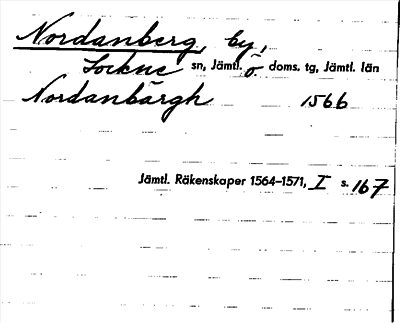 Nordanberg, by,
Lockne sn, Jämtl. ö. doms. tg, Jämtl. län
Nordanbärgh 1566
Jämtl. Räkenskaper 1564–1571, I s. 167